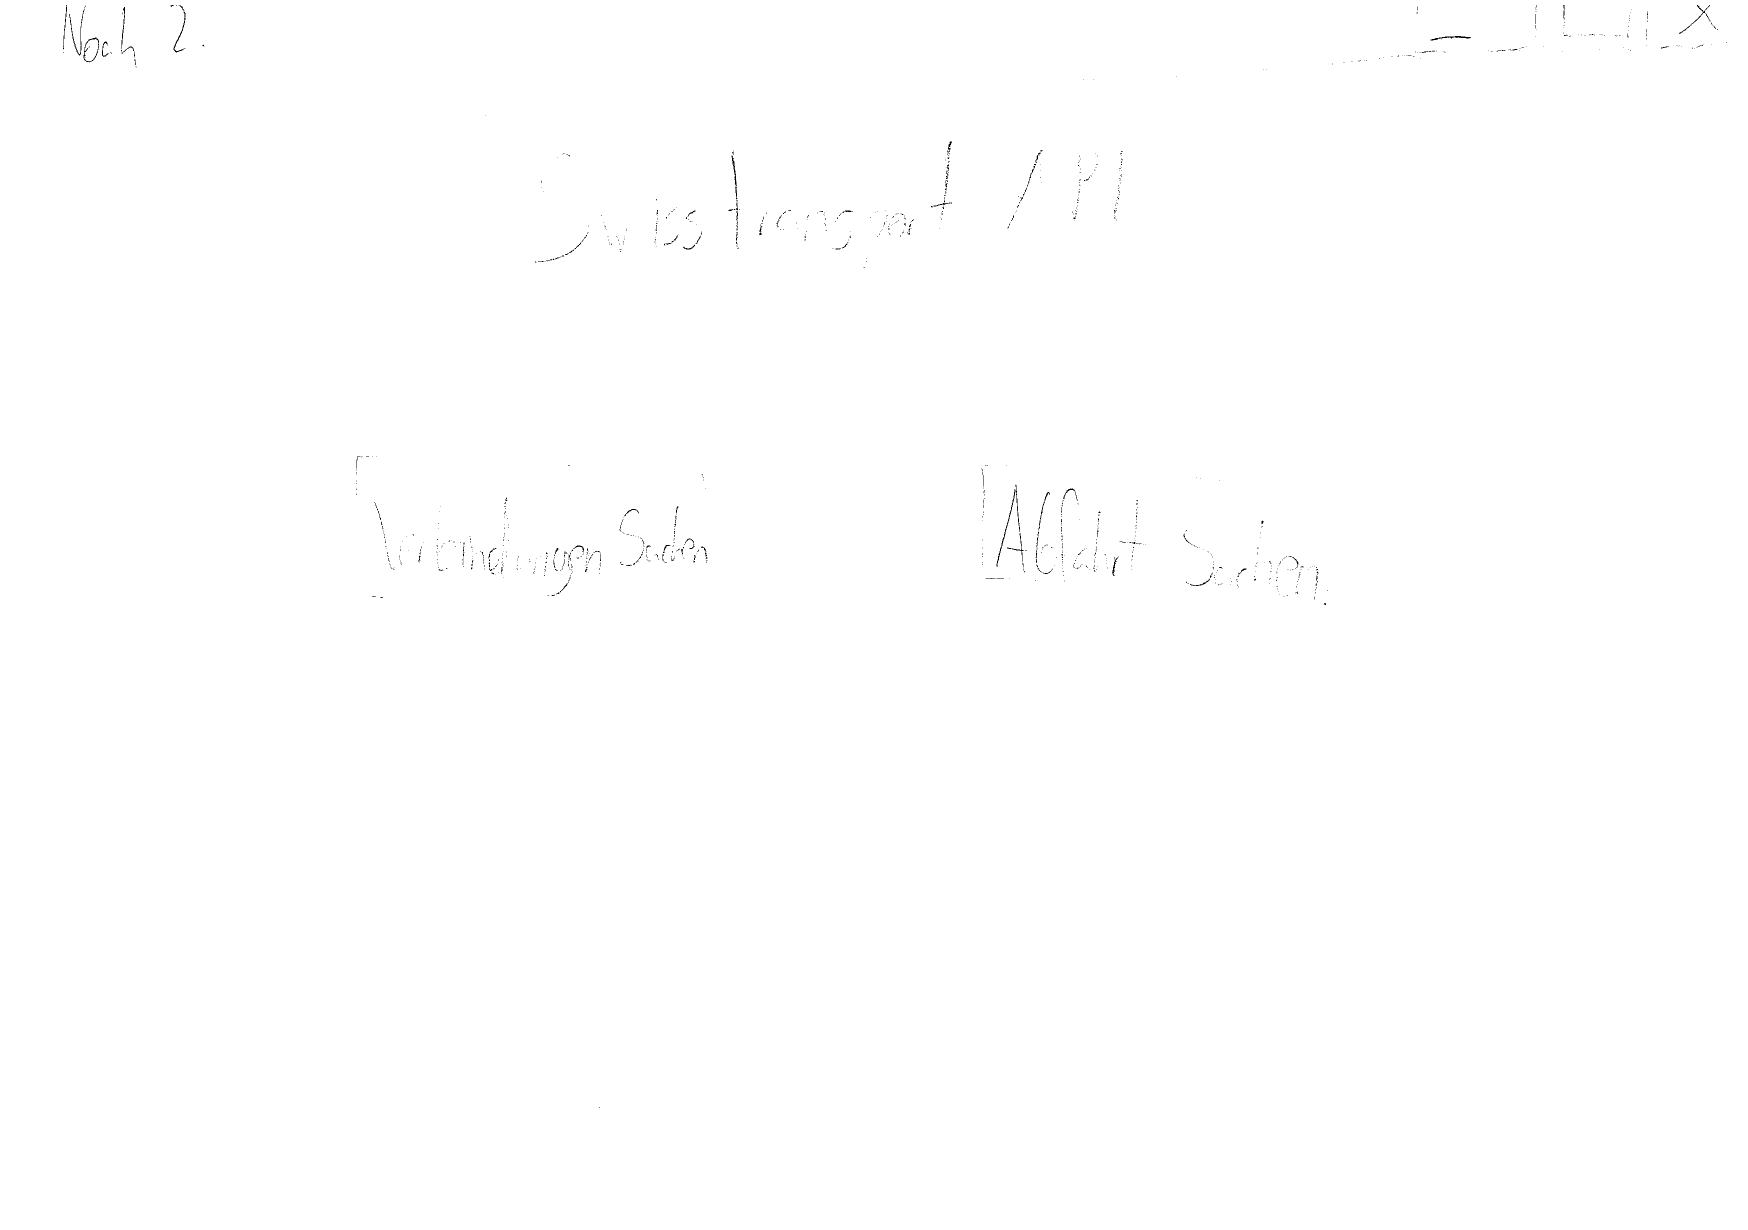 Noch 2.
Swiss transport API
Verbindungen Suchen
Abfahrt Suchen